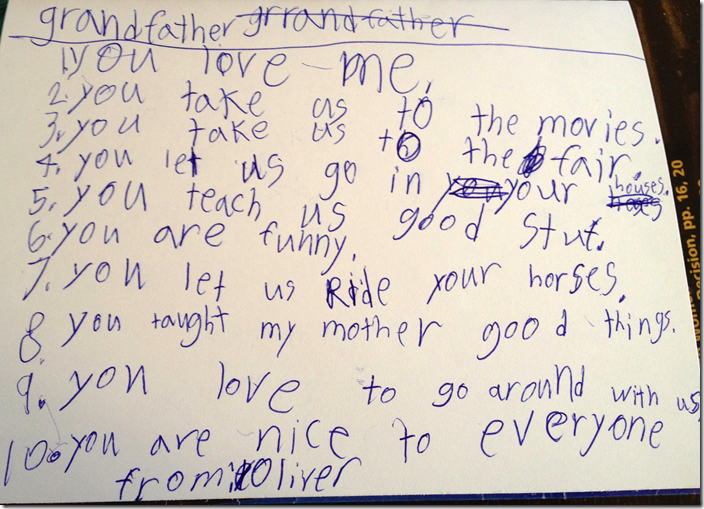 grandfather grrandfather
1. you love me.
2. you take us to the movies.
3. you take us to the fair.
4. you let us go in your houses.
5. you teach us good stuf.
6. you are funny.
7. you let us Ride your horses.
8. you taught my mother good things.
9. you love to go around with us
10. you are nice to everyone
from Oliver
ecision, pp. 16, 20